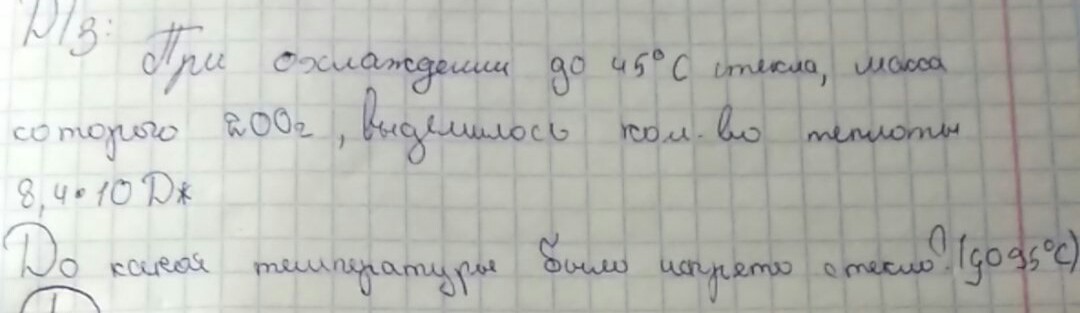 Д/З:
При охлаждении до 45°C стекла, масса
которого 200г, выделилось кол.во теплоты
8,4•10 Дж
До какой температуры было нагрето стекло? (до 95°C)